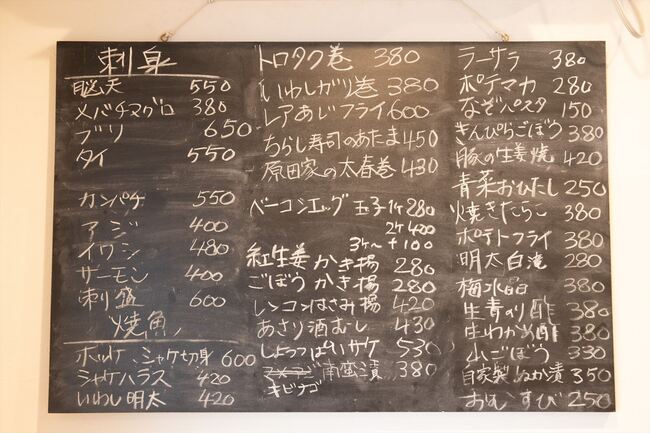 刺身
脳天 550
メバチマグロ 380
ブリ 650
タイ 550
カンパチ 550
アジ 400
イワシ 480
サーモン 400
刺盛 600
焼魚
ホッケ、シャケ切身 600
シャケハラス 420
いわし明太 420
トロタク巻 380
いわしガリ巻 380
レアあじフライ 600
ちらし寿司のあたま 450
原田家の大春巻 430
ベーコンエッグ 玉子1ケ 280
2ケ 400
3ケ〜 +100
紅生姜かき揚 280
ごぼうかき揚 280
レンコンはさみ揚 420
あさり酒むし 430
しょっぱいサケ 530
南蛮漬 380
キビナゴ
ラーサラ 380
ポテマカ 280
なぞパスタ 150
きんぴらごぼう 380
豚の生姜焼 420
青菜おひたし 250
焼きたらこ 380
ポテトフライ 380
明太白滝 280
梅水晶 380
生青のり酢 380
生わかめ酢 380
山ごぼう 330
自家製ぬか漬 350
おむすび 250